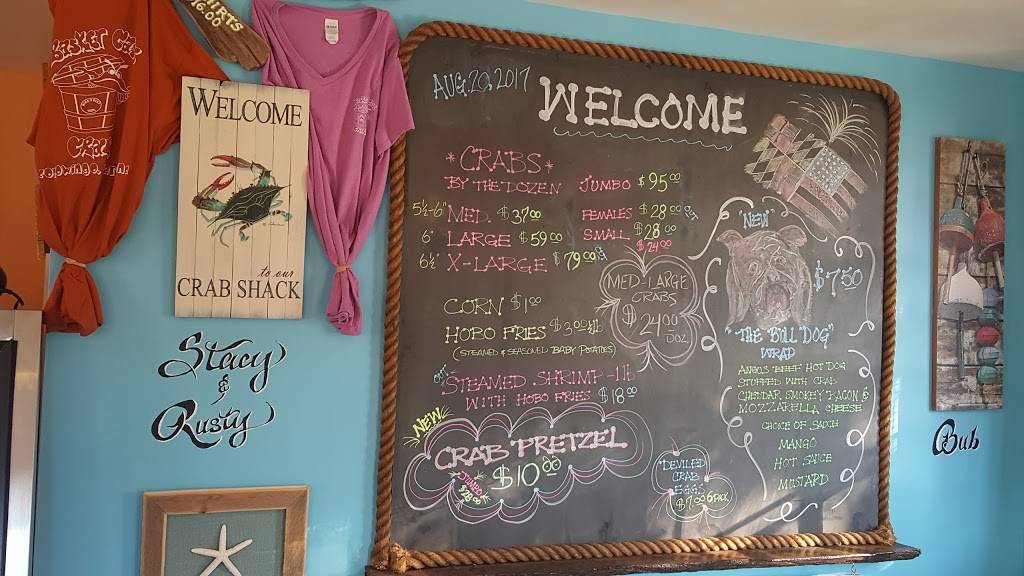 SHIRTS
$16.00
BASKET CASE
CRAB
WELCOME
to our
CRAB SHACK
Stacy
&
Rusty
AUG. 20, 2017
WELCOME
*CRABS*
BY THE DOZEN
JUMBO $95.00
5½-6" MED. $37.00
FEMALES $28.00
6" LARGE $59.00
SMALL $28.00
$24.00
6½" X-LARGE $79.00
MED-LARGE
CRABS
$24.00
DOZ
CORN $1.00
HOBO FRIES $3.00
(STEAMED & SEASONED BABY POTATOES)
STEAMED SHRIMP-1lb
WITH HOBO FRIES $18.00
NEW
CRAB PRETZEL
$10.00
"DEVILED
CRAB
EGGS"
$7.00 6 PACK
"NEW"
$7.50
"THE BULL DOG"
WRAP
ANGUS BEEF HOT DOG
STUFFED WITH CRAB
CHEDDAR, SMOKEY BACON &
MOZZARELLA CHEESE
CHOICE OF SAUCE
MANGO
HOT SAUCE
MUSTARD
Bub